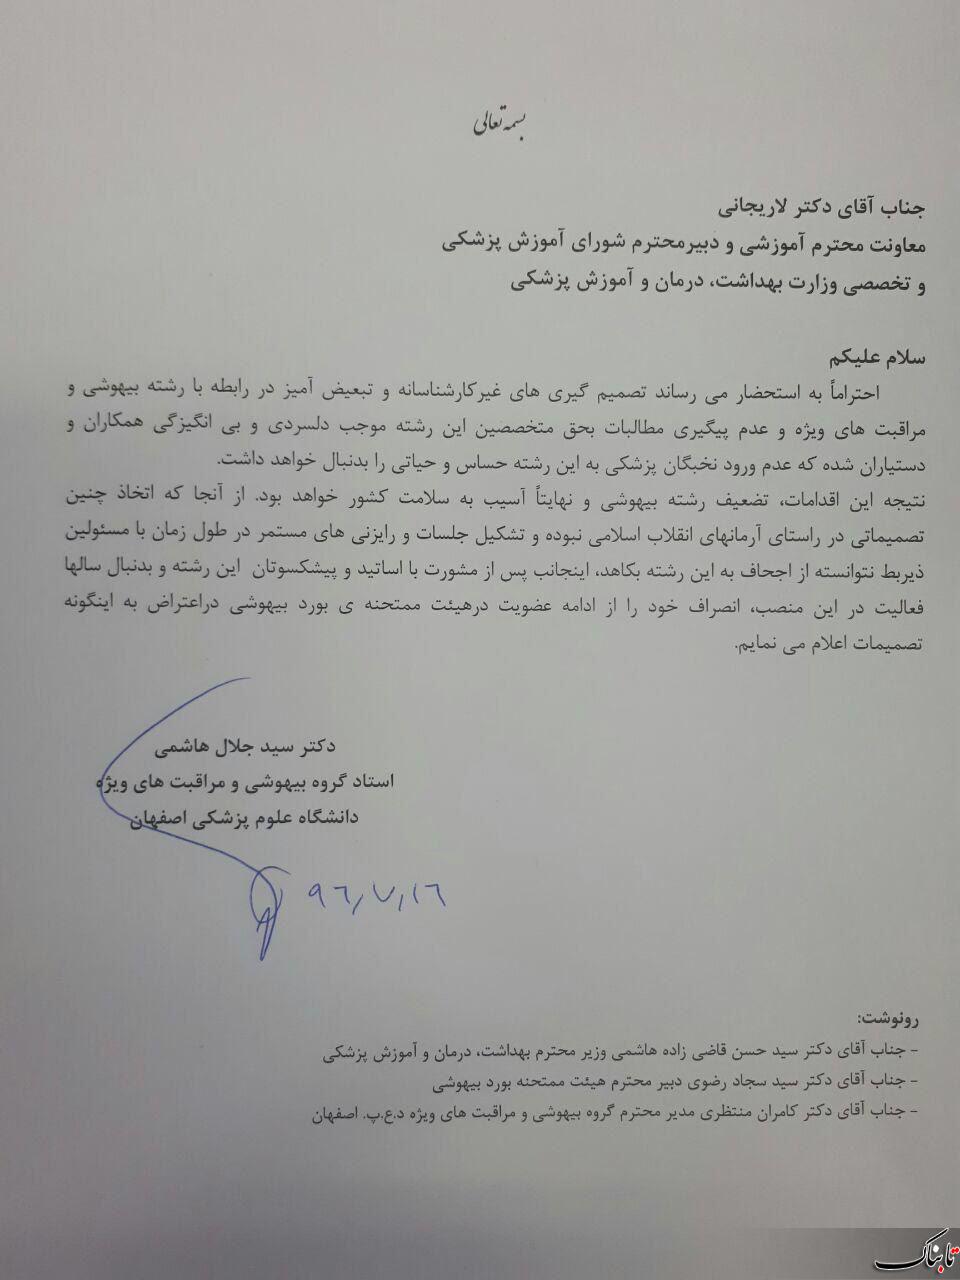 بسمه تعالی
جناب آقای دکتر لاریجانی
معاونت محترم آموزشی و دبیرمحترم شورای آموزش پزشکی
و تخصصی وزارت بهداشت، درمان و آموزش پزشکی
سلام علیکم
احتراماً به استحضار می رساند تصمیم گیری های غیرکارشناسانه و تبعیض آمیز در رابطه با رشته بیهوشی و
مراقبت های ویژه و عدم پیگیری مطالبات بحق متخصصین این رشته موجب دلسردی و بی انگیزگی همکاران و
دستیاران شده که عدم ورود نخبگان پزشکی به این رشته حساس و حیاتی را بدنبال خواهد داشت.
نتیجه این اقدامات، تضعیف رشته بیهوشی و نهایتاً آسیب به سلامت کشور خواهد بود. از آنجا که اتخاذ چنین
تصمیماتی در راستای آرمانهای انقلاب اسلامی نبوده و تشکیل جلسات و رایزنی های مستمر در طول زمان با مسئولین
ذیربط نتوانسته از اجحاف به این رشته بکاهد، اینجانب پس از مشورت با اساتید و پیشکسوتان این رشته و بدنبال سالها
فعالیت در این منصب، انصراف خود را از ادامه عضویت درهیئت ممتحنه ی بورد بیهوشی دراعتراض به اینگونه
تصمیمات اعلام می نمایم.
دکتر سید جلال هاشمی
استاد گروه بیهوشی و مراقبت های ویژه
دانشگاه علوم پزشکی اصفهان
۹۶,۷,۱۶
رونوشت:
- جناب آقای دکتر سید حسن قاضی زاده هاشمی وزیر محترم بهداشت، درمان و آموزش پزشکی
- جناب آقای دکتر سید سجاد رضوی دبیر محترم هیئت ممتحنه بورد بیهوشی
- جناب آقای دکتر کامران منتظری مدیر محترم گروه بیهوشی و مراقبت های ویژه د.ع.پ. اصفهان
تابناک